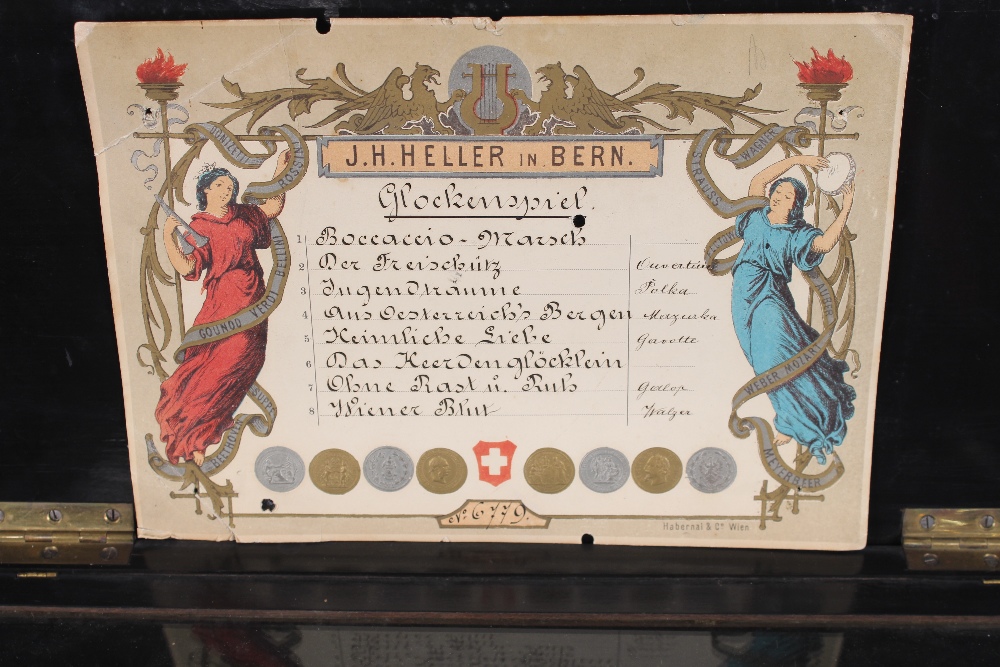 J.H. HELLER IN BERN.
Glockenspiel.
1 Boccaccio - Marsch
2 Der Freischütz Ouverture
3 Jugendträume Polka
4 Aus Oesterreich's Bergen Mazurka
5 Heimliche Liebe Gavotte
6 Das Heerdenglöcklein
7 Ohne Rast u. Ruh Galop
8 Wiener Blut Walzer
DONIZETTI
ROSSINI
BELLINI
GOUNOD VERDI
SUPPÉ
WAGNER
STRAUSS
AUBER
WEBER MOZART
MEYERBEER
No. 6779.
Habernal & Co. Wien